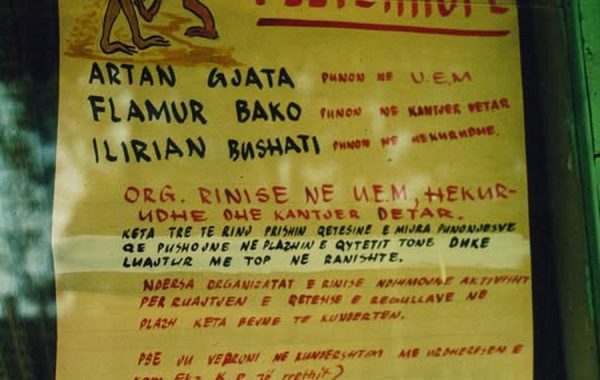 ARTAN GJATA PUNON NE U.E.M
FLAMUR BAKO PUNON NE KANTJER DETAR
ILIRIAN BUSHATI PUNON NE HEKURUDHE.
ORG. RINISE NE U.E.M, HEKUR-
UDHE DHE KANTJER DETAR.
KETA TRE TE RINJ PRISHIN QETESINE E MIJRA PUNONJESVE
QE PUSHOJNE NE PLAZHIN E QYTETIT TONE DUKE
LUAJTUR ME TOP NE RANISHTE.
NDERSA ORGANIZATAT E RINISE NDIHMOJNE AKTIVISHT
PER RUAJTJEN E QETESISE E REGULLAVE NE
PLAZH KETA BEJNE TE KUNDERTEN.
PSE JU VEPRONI NE KUNDERSHTIM ME URDHERESEN E
KOM. EKZ. K.P. TË rrethit?